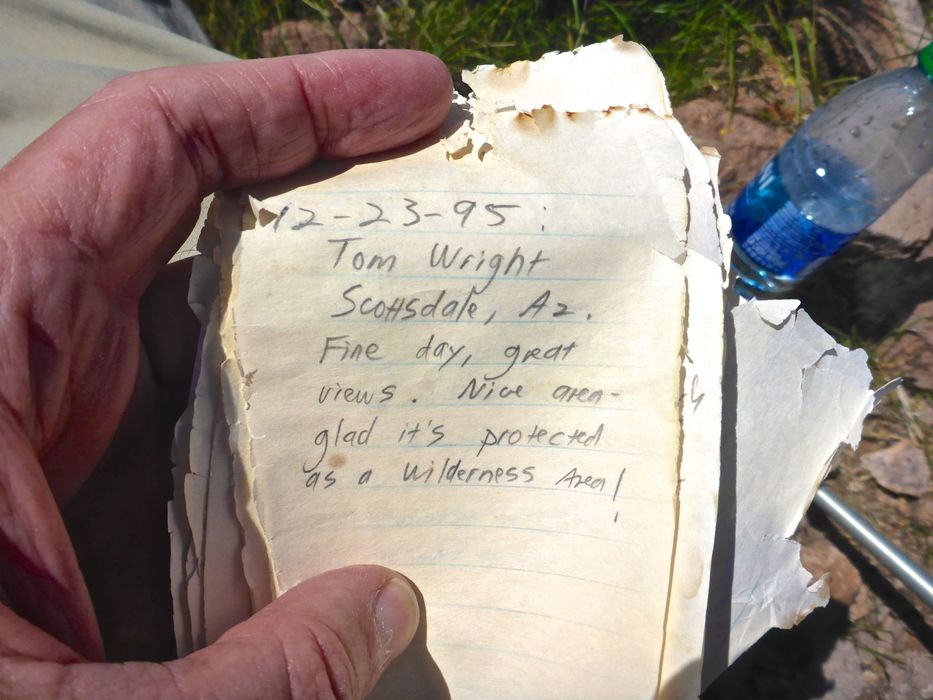 12-23-95:
Tom Wright
Scottsdale, Az.
Fine day, great
views. Nice area-
glad it's protected
as a Wilderness Area!